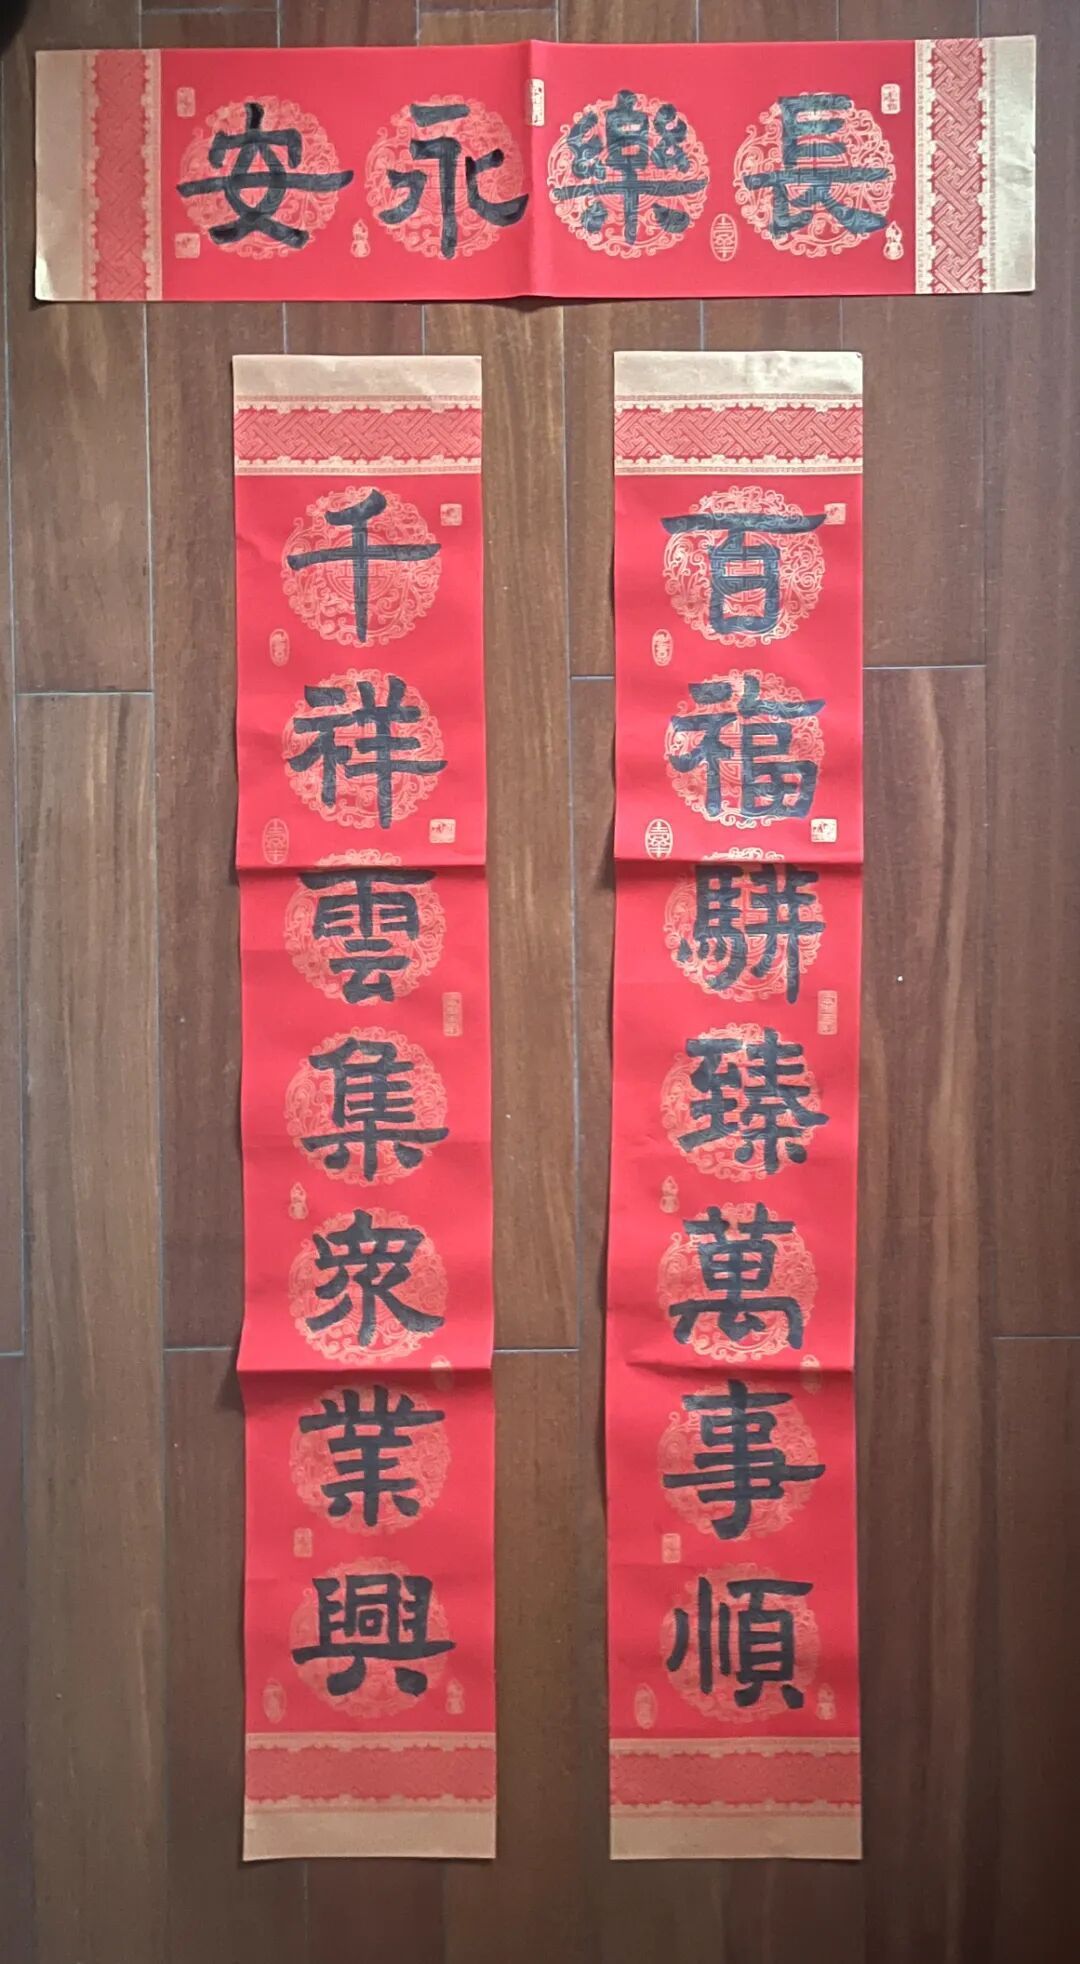 長樂永安
百福駢臻萬事順
千祥雲集眾業興